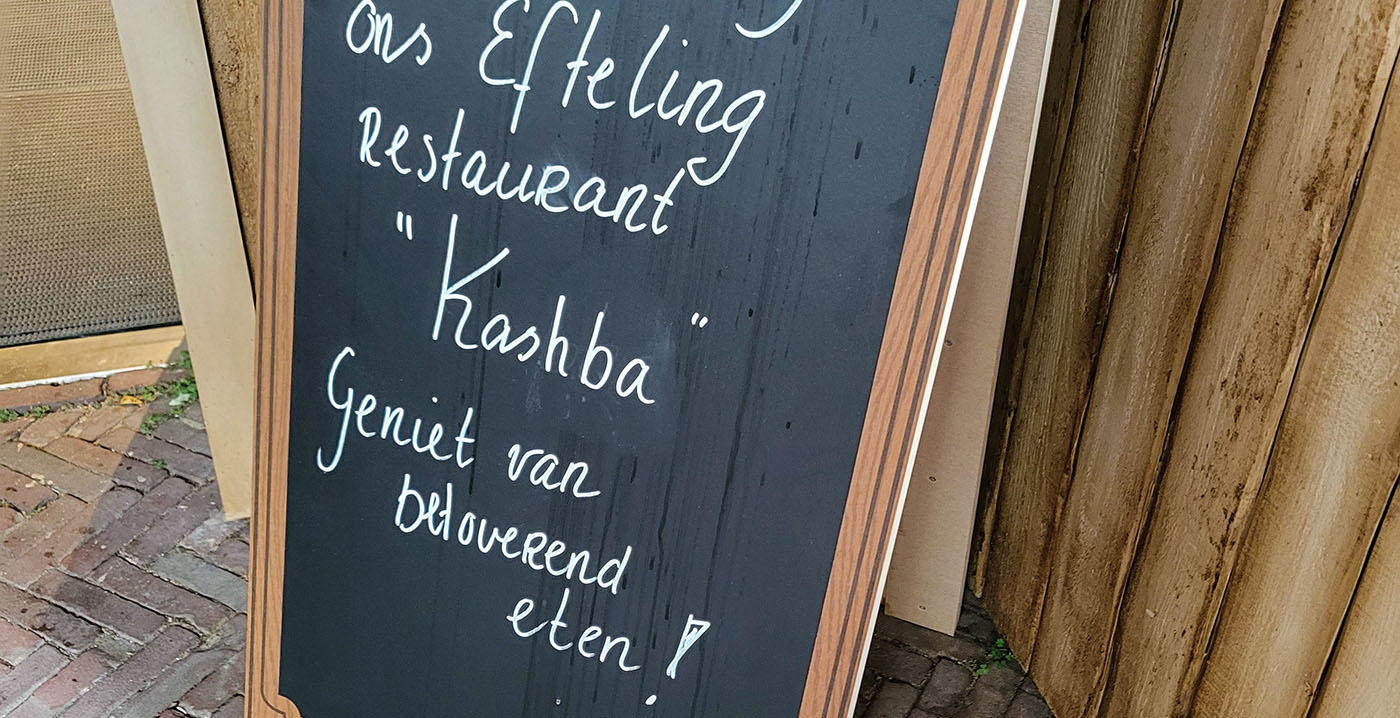 ons Efteling
Restaurant
"Kashba"
Geniet van
betoverend
eten!